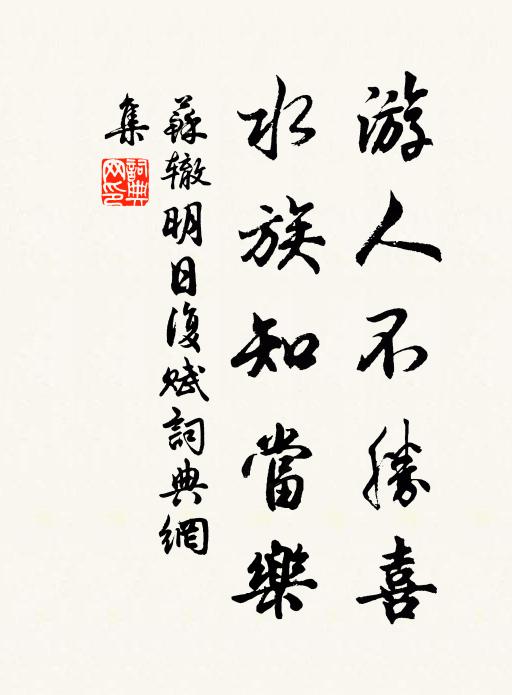 游人不勝喜
水族知當樂
蘇辙明日復赋詞典網
集
詞典
网印